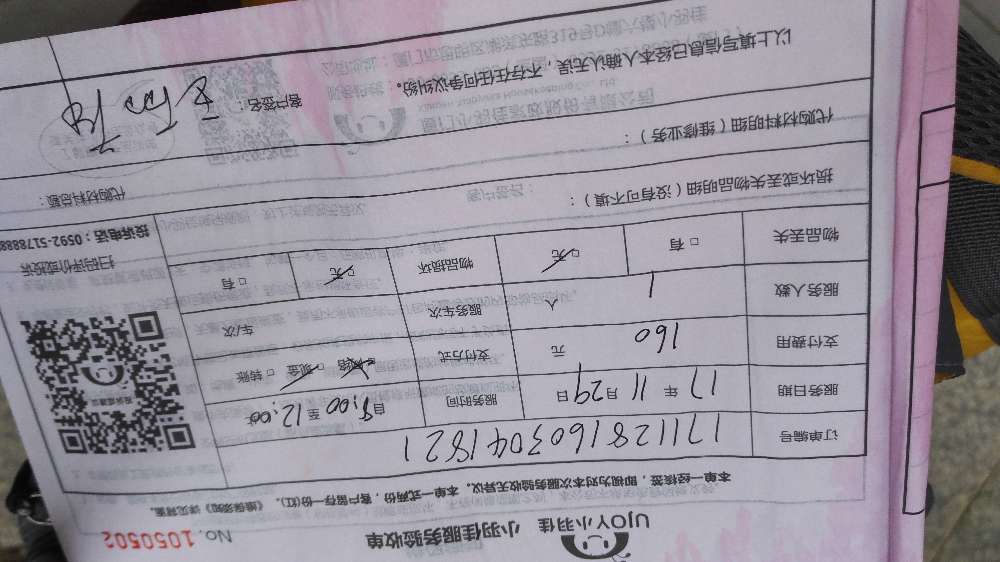 UJOY小羽佳 小羽佳服务验收单
No. 1050502
本单一经核签，即视为对本次服务验收无异议。本单一式两份，客户留存一份(红)。《维保须知》详见背面。
订单编号 1711281603041821
服务日期 17 年 11 月 29 日 服务时间 自 8:00 至 12:00
支付费用 160 元 支付方式 □网络 □现金 □转账
服务人数 1 人 服务车次 车/次
物品丢失 □有 □无 物品损坏 □无 □有
扫码评价或投诉
投诉电话：0592-5178888
损坏或丢失物品明细（没有可不填）：
代购材料明细（维修业务）：
代购材料总额：
以上填写信息已经本人确认无误，不存在任何争议纠纷。
客户签名：